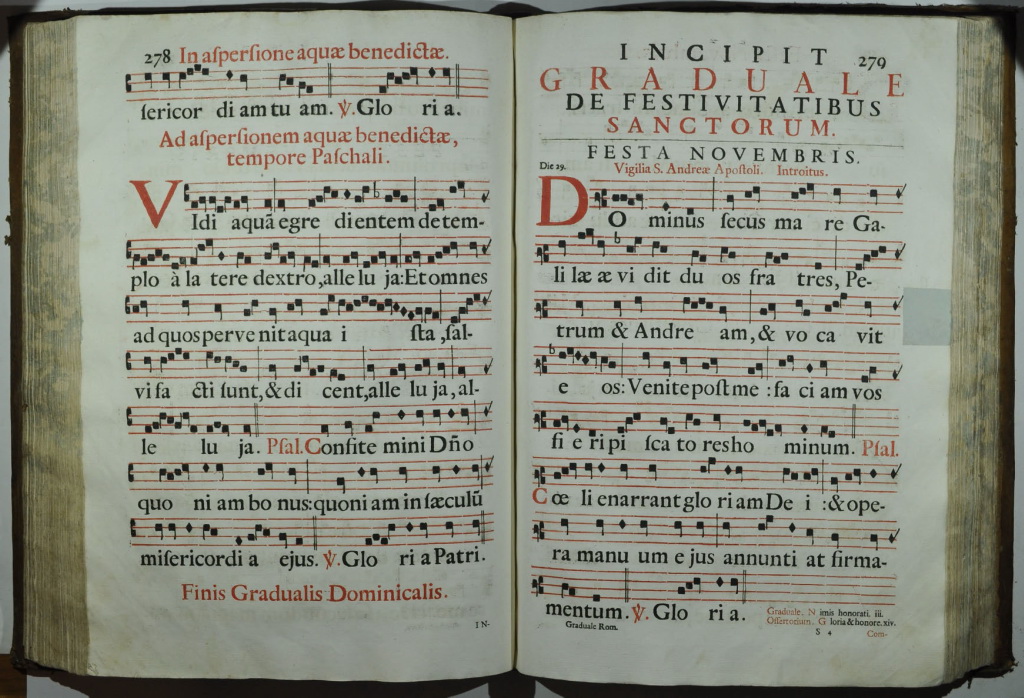 278 In aſperſione aquæ benedictæ.
ſericor di am tu am. ℣. Glo ri a.
Ad aſperſionem aquæ benedictæ,
tempore Paſchali.
VIdi aquã egre di entem de tem-
plo à la tere dextro, alle lu ja: Et omnes
ad quos perve nit aqua i ſta, ſal-
vi fa cti ſunt, & di cent, alle lu ja, al-
le lu ja. Pſal. Confite mini Dño
quo ni am bo nus: quoni am in ſæculũ
miſericordi a ejus. ℣. Glo ri a Patri.
Finis Gradualis Dominicalis.
IN-
INCIPIT 279
GRADUALE
DE FESTIVITATIBUS
SANCTORUM.
FESTA NOVEMBRIS.
Die 29. Vigilia S. Andreæ Apoſtoli. Introitus.
DO minus ſecus ma re Ga-
li læ æ vi dit du os fra tres, Pe-
trum & Andre am, & vo ca vit
e os: Venite poſt me : fa ci am vos
fi e ri pi ſca to res ho minum. Pſal.
Cœ li enarrant glo ri am De i : & ope-
ra manu um e jus annunti at firma-
mentum. ℣. Glo ri a.
Graduale. N imis honorati. iii.
Offertorium. G loria & honore. xiv.
Graduale Rom. S 4 Com-